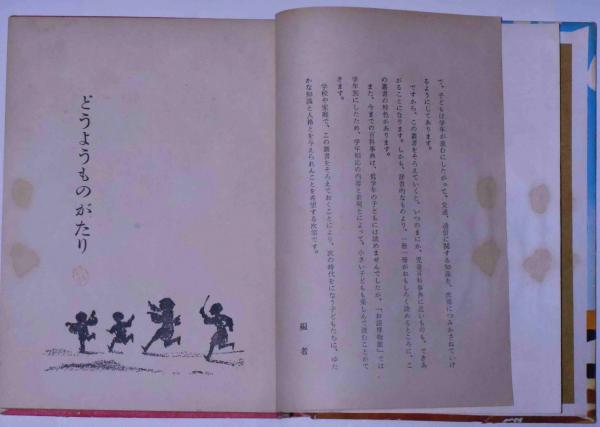 で、子どもは学年が進むにしたがって、交通、通信に関する知識を、次第につみかさねていけ
るようにしてあります。
ですから、この叢書をそろえていくと、いつのまにか、児童百科事典に近いものも、できあ
がることになります。しかも、辞書的なものより、一冊一冊がおもしろく読めるところに、こ
の叢書の特色があります。
また、今までの百科事典は、低学年の子どもには読めませんでしたが、「お話博物館」では
学年別にしたため、学年相応の内容と表現とによって、小さい子どもも楽しんで読むことがで
きます。
学校や家庭で、この叢書をそろえておくことにより、次の時代をになう子どもたちに、ゆた
かな知識と人格とを与えられんことを希望する次第です。
編者
どうようものがたり